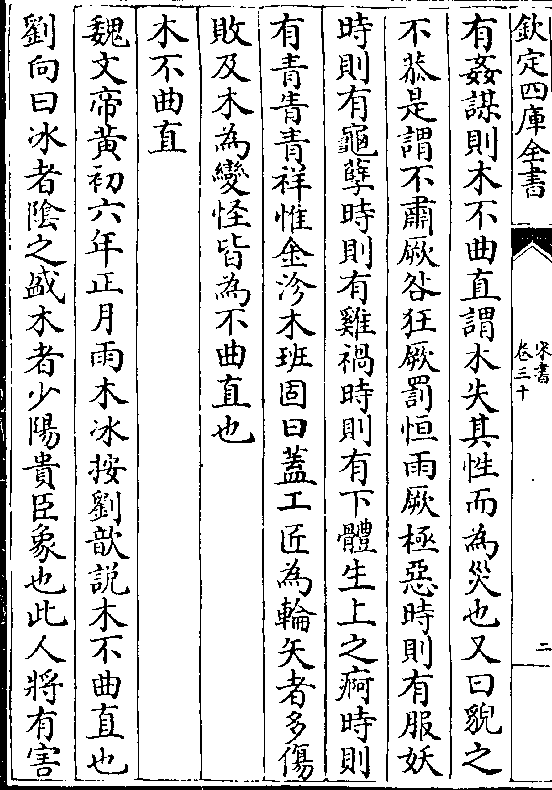 欽定四庫全書
宋書
卷三十
二
有姦謀則木不曲直謂木失其性而為災也又曰貌之
不恭是謂不肅厥咎狂厥罰恒雨厥極惡時則有服妖
時則有龜孽時則有雞禍時則有下體生上之痾時則
有青眚青祥惟金沴木班固曰蓋工匠為輪矢者多傷
敗及木為變怪皆為不曲直也
木不曲直
魏文帝黃初六年正月雨木冰按劉歆說木不曲直也
劉向曰冰者陰之盛木者少陽貴臣象也此人將有害